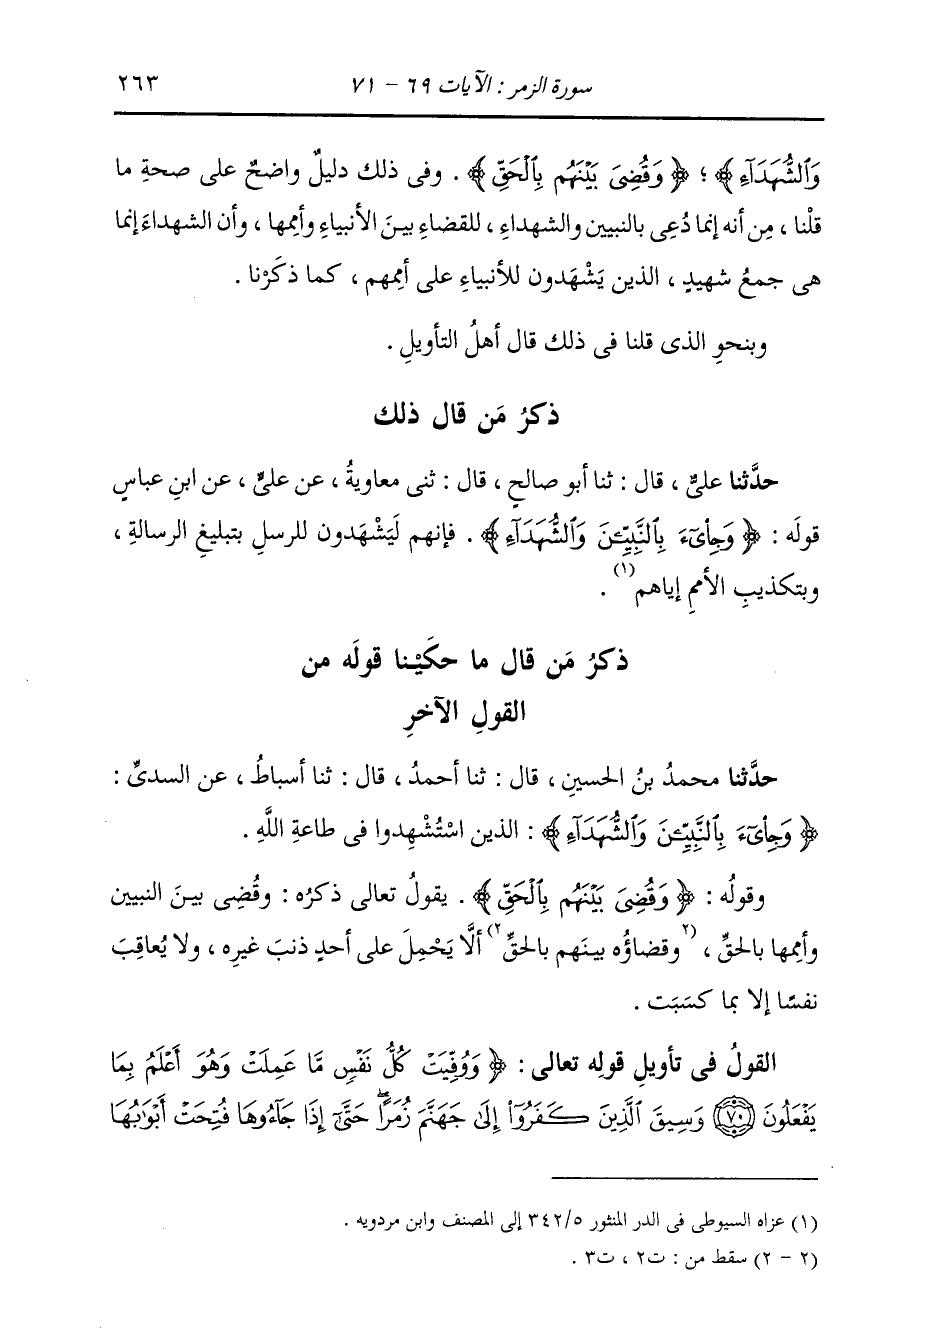 سورة الزمر : الآيات ٦٩ - ٧١ ٢٦٣
وَٱلشُّهَدَآءِ﴾ ؛ ﴿وَقُضِىَ بَيْنَهُم بِٱلْحَقِّ﴾ . وفى ذلك دليلٌ واضحٌ على صحةِ ما
قلْنا ، مِن أنه إنما دُعِى بالنبيين والشهداءِ ، للقضاءِ بينَ الأنبياءِ وأممِها ، وأن الشهداءَ إنما
هى جمعُ شهيدٍ ، الذين يَشْهَدون للأنبياءِ على أممِهم ، كما ذكَرْنا .
وبنحوِ الذى قلنا فى ذلك قال أهلُ التأويلِ .
ذكرُ مَن قال ذلك
حدَّثنا علىٌّ ، قال : ثنا أبو صالحٍ ، قال : ثنى معاويةُ ، عن علىٍّ ، عن ابنِ عباسٍ
قولَه : ﴿وَجِاْىٓءَ بِٱلنَّبِيِّـۧنَ وَٱلشُّهَدَآءِ﴾ . فإنهم لَيَشْهَدون للرسلِ بتبليغِ الرسالةِ ،
وبتكذيبِ الأممِ إياهم(١) .
ذكرُ مَن قال ما حكَيْنا قولَه من
القولِ الآخرِ
حدَّثنا محمدُ بنُ الحسينِ ، قال : ثنا أحمدُ ، قال : ثنا أسباطُ ، عن السدىِّ :
﴿وَجِاْىٓءَ بِٱلنَّبِيِّـۧنَ وَٱلشُّهَدَآءِ﴾ : الذين اسْتُشْهِدوا فى طاعةِ اللَّهِ .
وقولُه : ﴿وَقُضِىَ بَيْنَهُم بِٱلْحَقِّ﴾ . يقولُ تعالى ذكرُه : وقُضِى بينَ النبيين
وأممِها بالحقِّ ، (٢وقضاؤُه بينَهم بالحقِّ٢) ألَّا يَحْمِلَ على أحدٍ ذنبَ غيرِه ، ولا يُعاقِبَ
نفسًا إلا بما كسَبَت .
القولُ فى تأويلِ قولِه تعالى : ﴿وَوُفِّيَتْ كُلُّ نَفْسٍ مَّا عَمِلَتْ وَهُوَ أَعْلَمُ بِمَا
يَفْعَلُونَ ٧٠ وَسِيقَ ٱلَّذِينَ كَفَرُوٓاْ إِلَىٰ جَهَنَّمَ زُمَرًاۖ حَتَّىٰٓ إِذَا جَآءُوهَا فُتِحَتْ أَبْوَٰبُهَا
(١) عزاه السيوطى فى الدر المنثور ٣٤٢/٥ إلى المصنف وابن مردويه .
(٢ - ٢) سقط من : ت٢ ، ت٣ .